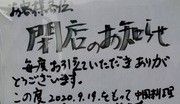 お客様各位
閉店のお知らせ
毎度お引立ていただきありがとう
とうございます。
この度2020.9.19.をもって中国料理